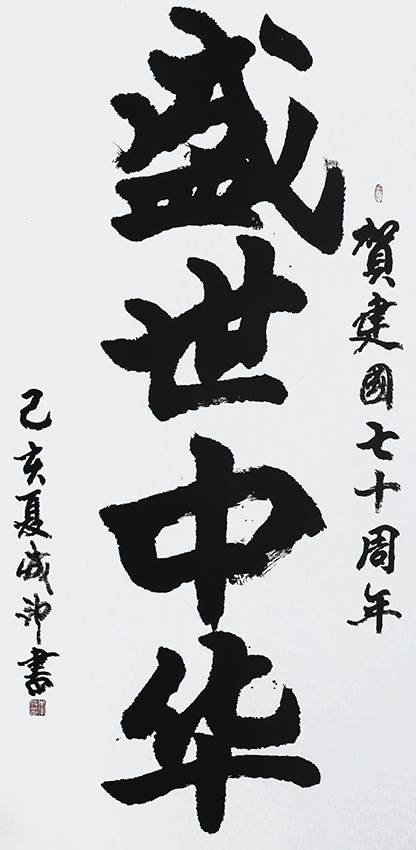 賀建國七十周年
盛世中华
己亥夏 書